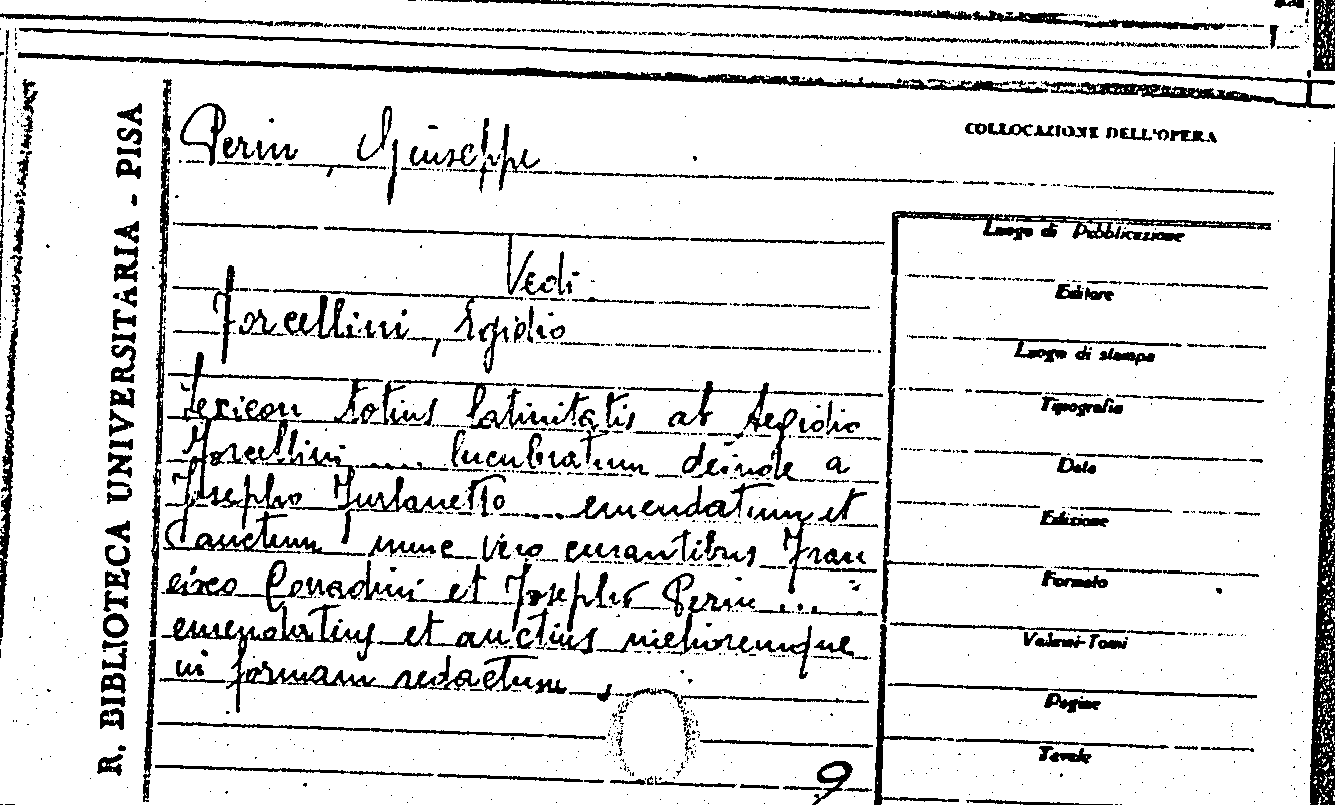 R. BIBLIOTECA UNIVERSITARIA - PISA
Perin, Giuseppe
COLLOCAZIONE DELL'OPERA
Vedi
Forcellini, Egidio
Lexicon totius latinitatis ab Aegidio
Forcellini .... lucubratum deinde a
Josepho Furlanetto ... emendatum et
auctum nunc vero curantibus Fran
cisco Corradini et Josepho Perin ...
emendatius et auctius melioremque
in formam redactum.
9
Luogo di Pubblicazione
Editore
Luogo di stampa
Tipografia
Data
Edizione
Formato
Volumi-Tomi
Pagine
Tavole